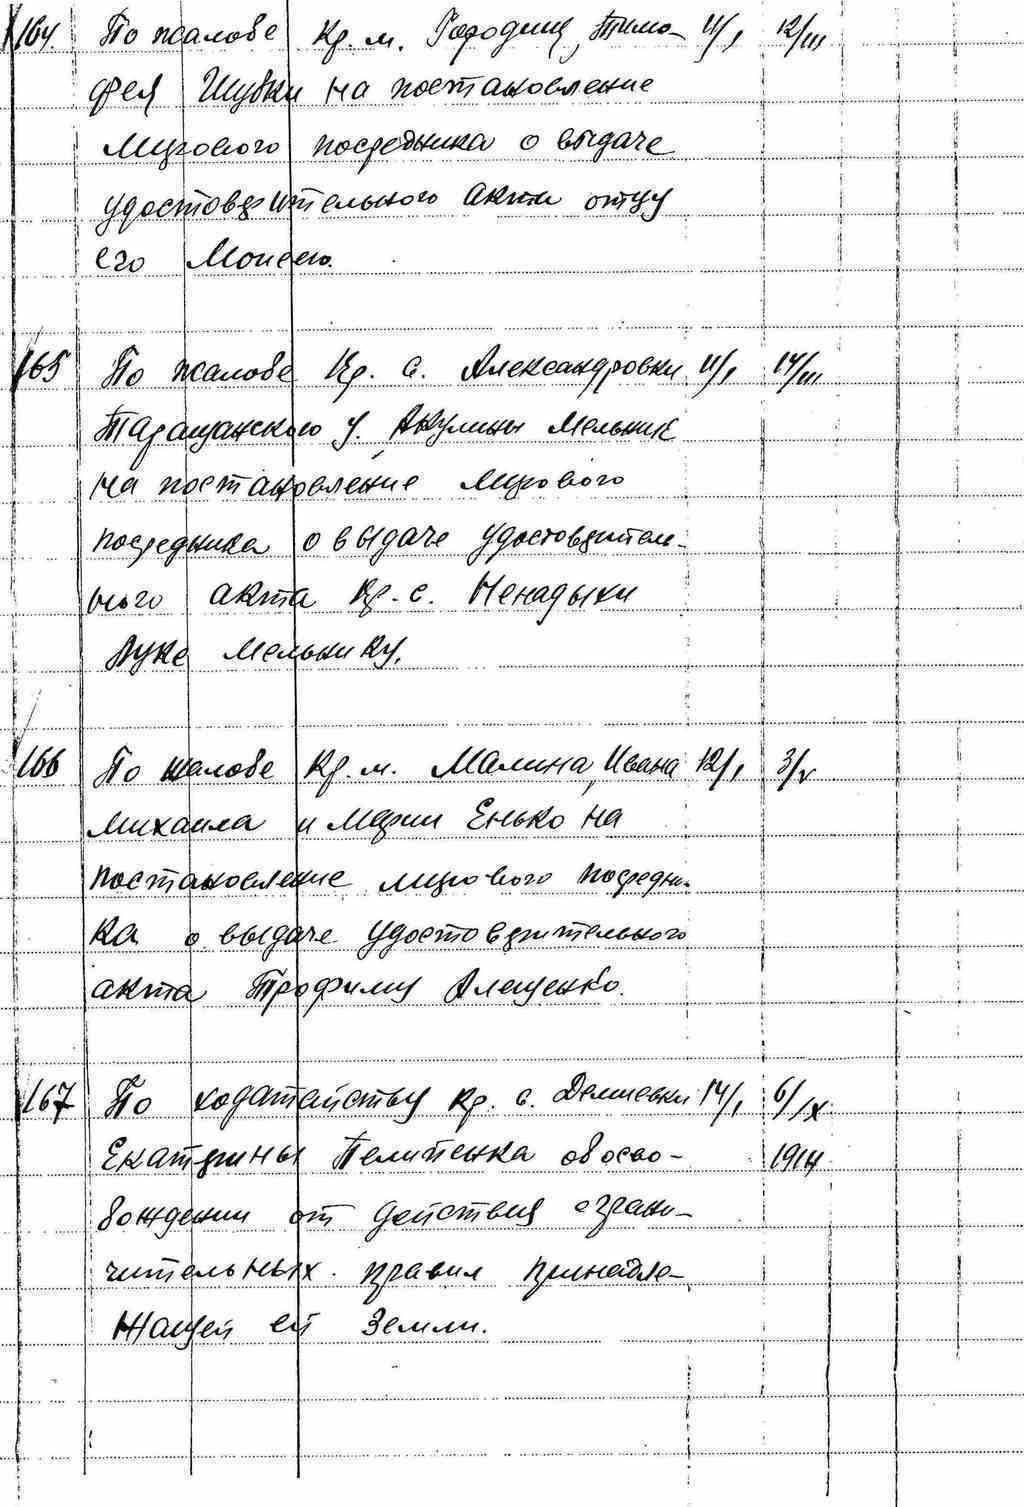 164. По жалобе кр. м. Городищ, Тимо- 11/I 12/III
фея Шубки на постановление
Мирового посредника о выдаче
удостоверительного акта отцу
его Моисею.
165 По жалобе кр. с. Александровки 11/I 14/III
Таращанского у. Акулины Мельник
на постановление Мирового
посредника о выдаче удостоверитель-
ного акта кр. с. Ненадыхи
Луке Мельнику.
166 По жалобе кр. м. Малина, Ивана 12/I 3/V
Михаила и Марии Енько на
постановление мирового посредни-
ка о выдаче удостоверительного
акта Трофиму Алещенко.
167 По ходатайству кр. с. Демиевки 14/I 6/IX
Екатерины Пелипенка об осво- 1914
бождении от действия ограни-
чительных правил принадле-
жащей ей земли.